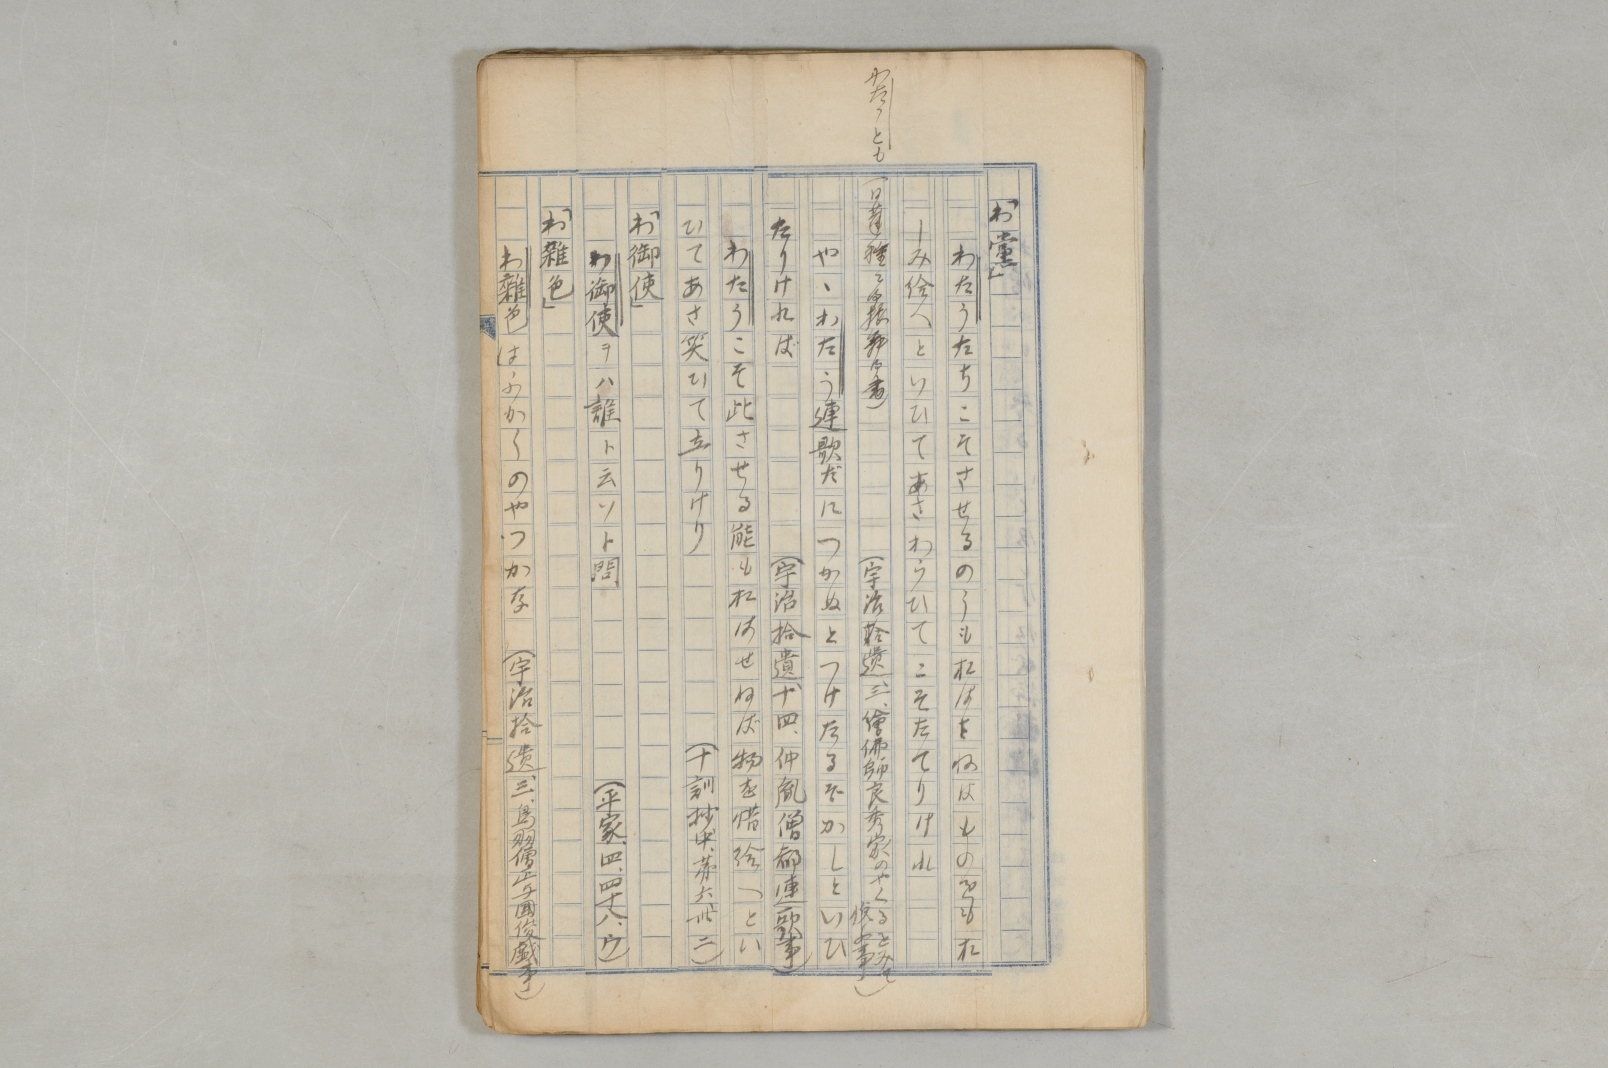 わ「黨」
わたうたちこそさせるのうもおはせねはものをもお
しみ給へといひてあさわらひてこそたてりけれ
わたうとも
(宇治拾遺三、僧佛師良秀家のやくるをみて悦事)
やゝわたう連歌だにつかぬとつけたるぞかしといひ
たりければ
(宇治拾遺十四、仲胤僧都連歌事)
わたうこそ此させる能もおはせねば物を惜給へとい
ひてあさ笑ひて立りけり
(十訓抄中、第六ノ卅二)
わ「御使」
わ御使ヲハ誰ト云ソト問
(平家、四、四十八、ウ)
わ「雜色」
わ雜色はふかくのやつかな
(宇治拾遺三、鳥羽僧正与國俊戲事)